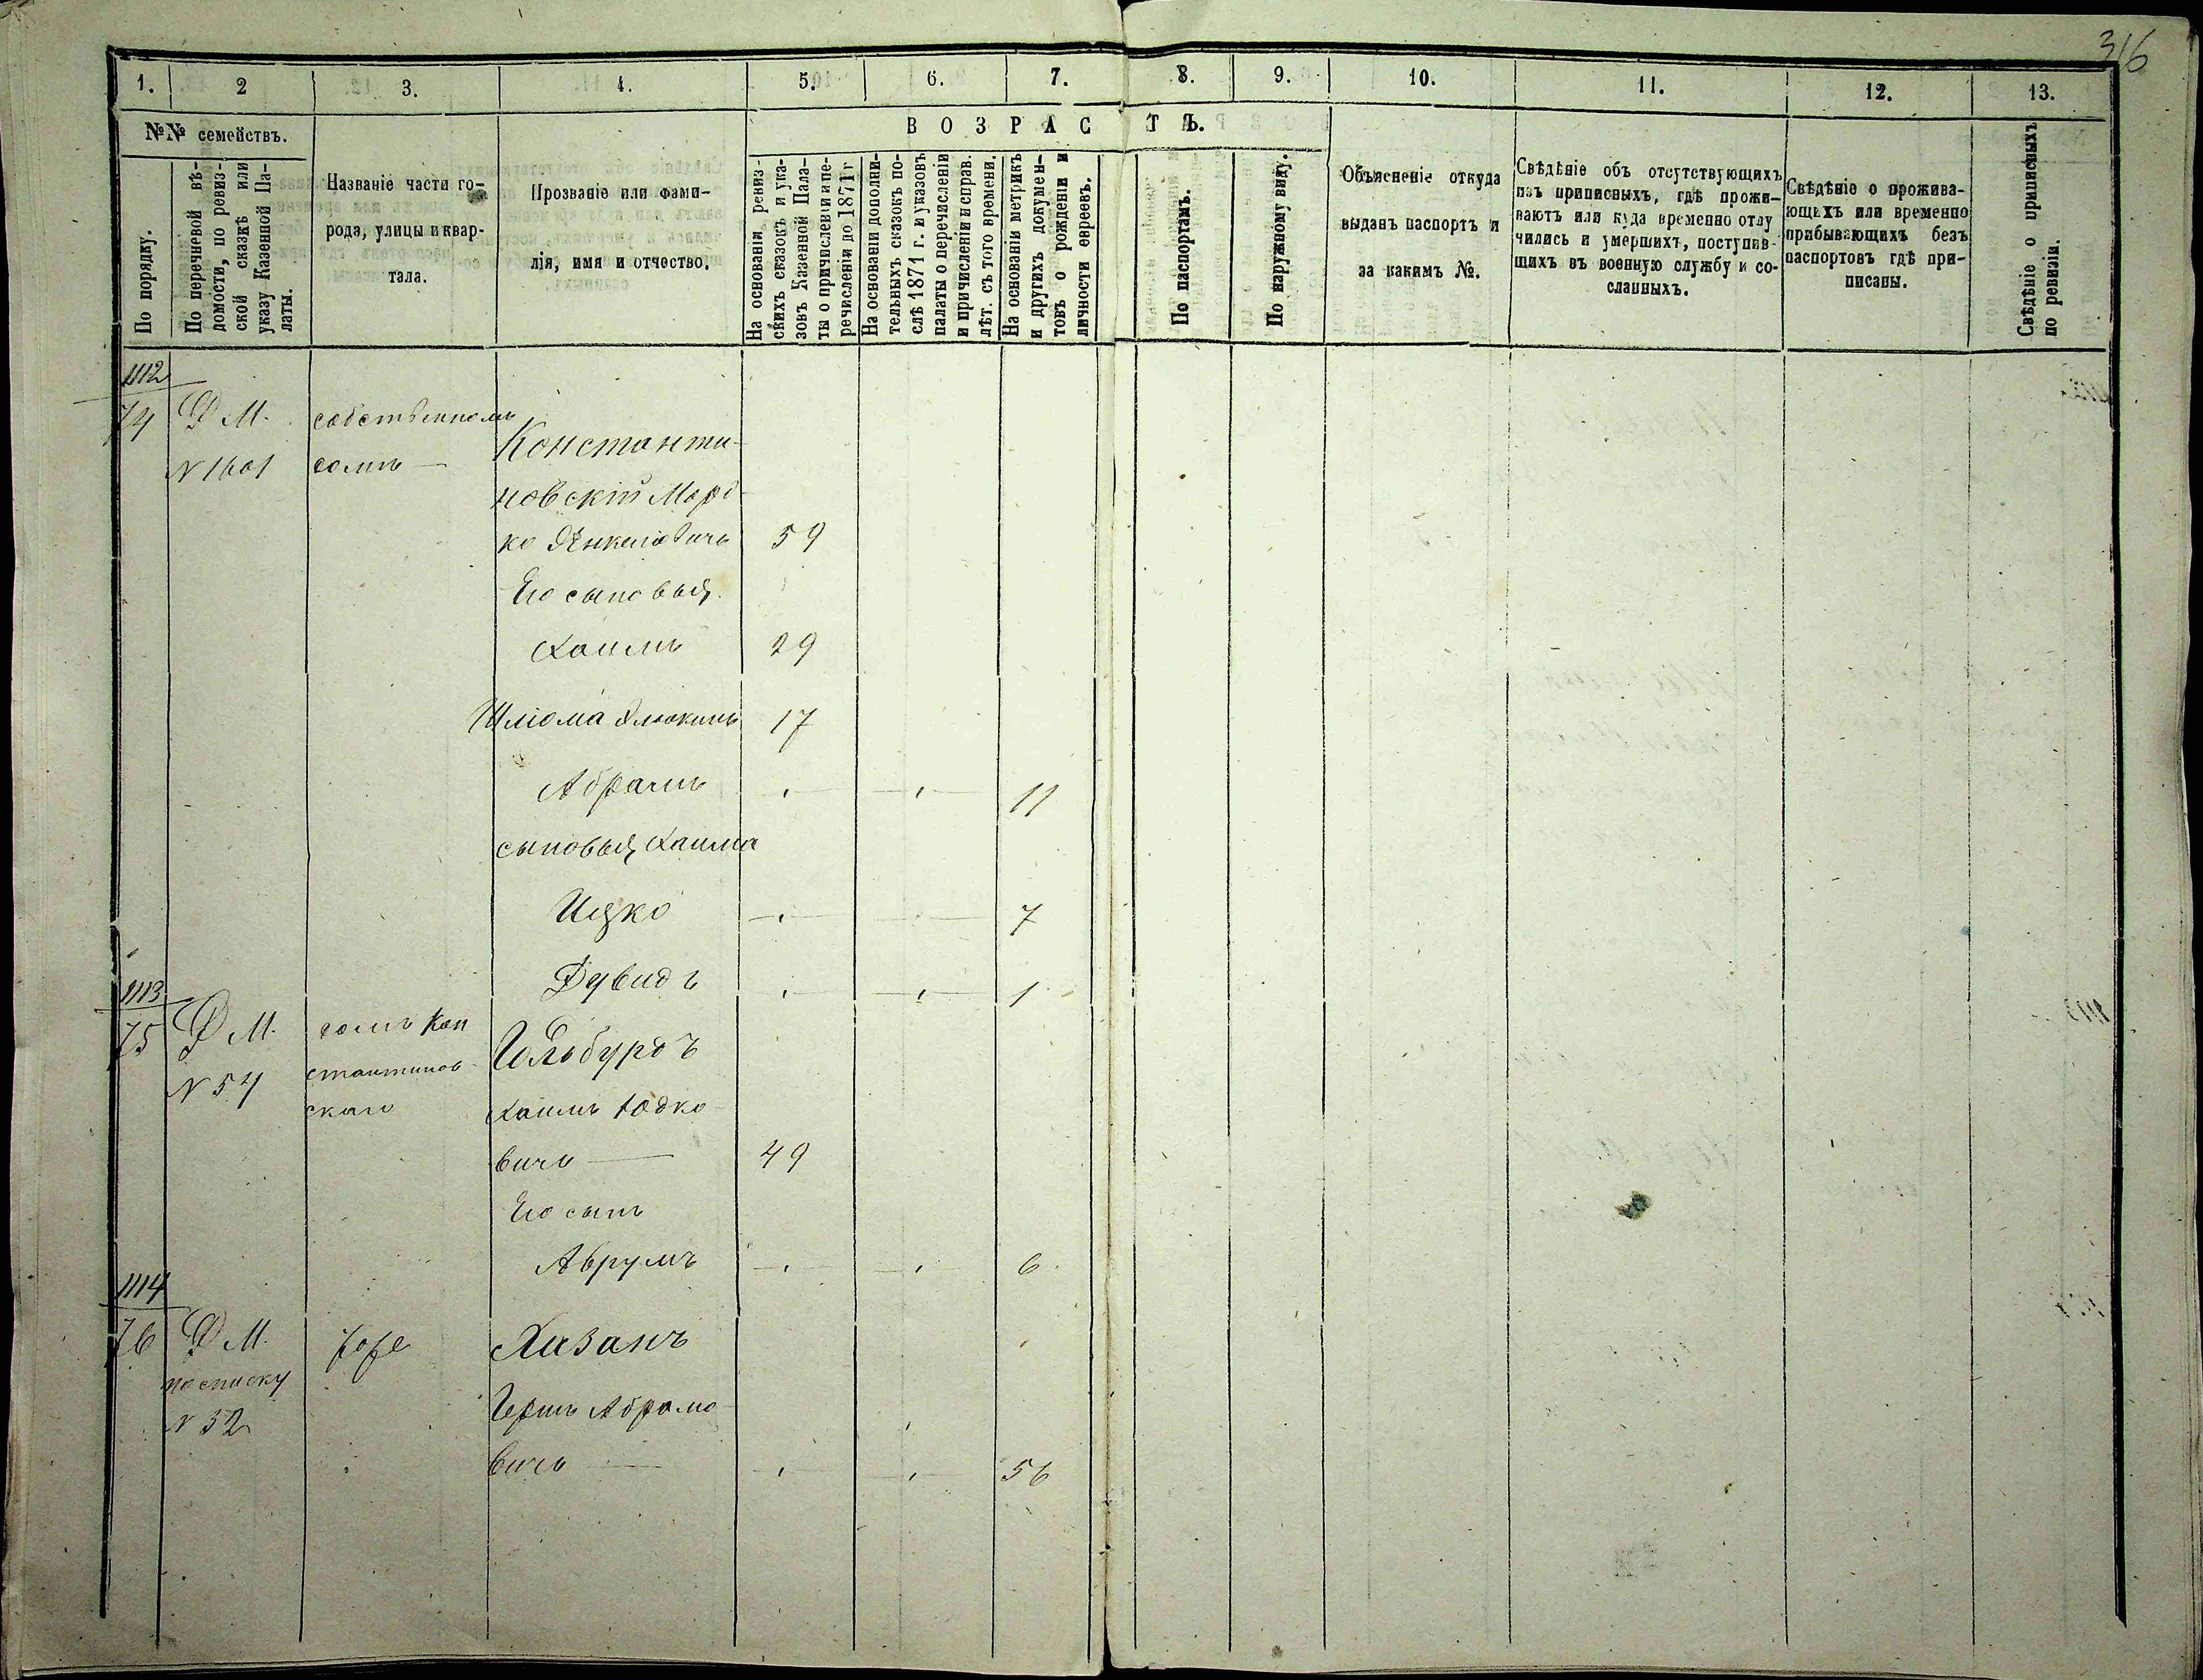 316
1. 2 3. 4. 5. 6. 7. 8. 9. 10. 11. 12. 13.
№№ семействъ.
По порядку.
По перечневой вѣ-
домости, по ревиз-
ской сказкѣ или
указу Казенной Па-
латы.
Названіе части го-
рода, улицы и квар-
тала.
Прозваніе или фами-
лія, имя и отчество.
ВОЗРАСТЪ.
На основаніи ревиз-
скихъ сказокъ и ука-
зовъ Казенной Пала-
ты о причисленіи и пе-
речисленіи до 1871 г
На основаніи дополни-
тельныхъ сказокъ по-
слѣ 1871 г. и указовъ
палаты о перечисленіи
и причисленіи и справ.
лѣт. съ того времени.
На основаніи метрикъ
и другихъ докумен-
товъ о рожденіи и
личности евреевъ.
По паспортамъ.
По наружному виду.
Объясненіе откуда
выданъ паспортъ и
за какимъ №.
Свѣдѣніе объ отсутствующихъ
изъ приписныхъ, гдѣ прожи-
ваютъ или куда временно отлу
чились и умершихъ, поступив-
шихъ въ военную службу и со-
сланныхъ.
Свѣдѣніе о прожива-
ющихъ или временно
прибывающихъ безъ
паспортовъ гдѣ при-
писаны.
Свѣдѣніе о приписныхъ
по ревизіи.
1112
74 Д М. собственномъ
Константи-
N 1601 домѣ —
новскій Морд-
ко Янкелевичъ 59
Его сыновья
Хаимъ 29
Шліома 17
Абрамъ 11
сыновья Хаима
Ицко 7
Дувидъ 1
1113
75 Д М. домъ Кон
стантинов-
скаго
N 54
Гольбурдъ
Хаимъ Юдко-
вичъ — 49
Его сынъ
Аврумъ 6
1114
76 Д М. тоже Хазанъ
по списку
N 32
Гершъ Абрамо-
вичъ — 56